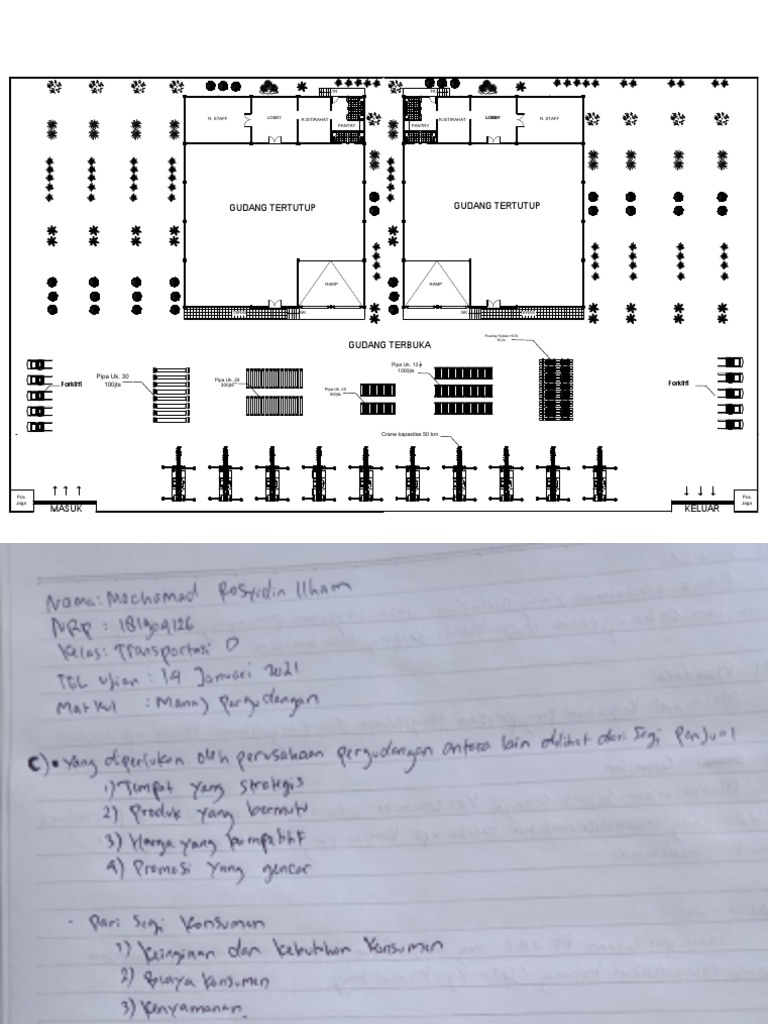 TR
TR
R. STAFF
LOBBY
R.ISTIRAHAT
PANTRY
PANTRY
R.ISTIRAHAT
LOBBY
R. STAFF
GUDANG TERTUTUP
GUDANG TERTUTUP
RAMP
RAMP
NK
NK
GUDANG TERBUKA
Pipa Uk. 30
100jts
Pipa Uk. 24
300jts
Pipa Uk. 20
Pipa Uk. 12
1000jts
Forklift
Forklift
Crane kapasitas 50 ton
Pos
Jaga
MASUK
KELUAR
Pos
Jaga
Nama: Mochamad Rosyidin Ilham
NRP : 181904126
Kelas: Transportasi D
TGL Ujian : 14 Januari 2021
Matkul : Manaj pergudangan
C) • Yang diperlukan oleh perusahaan pergudangan antara lain dilihat dari segi penjual
1) Tempat yang strategis
2) Produk yang bermutu
3) Harga yang kompatitif
4) Promosi yang gencar
- Dari segi konsumen
1) Keinginan dan kebutuhan konsumen
2) Biaya konsumen
3) Kenyamanan